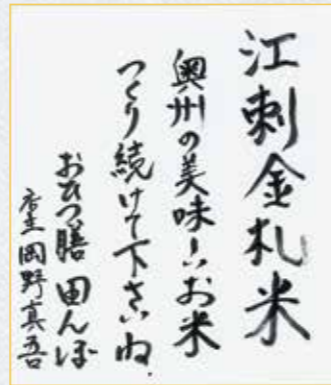 江刺金札米
奥州の美味しいお米
つくり続けて下さいね.
おひつ膳 田んぼ
店主 岡野真吾